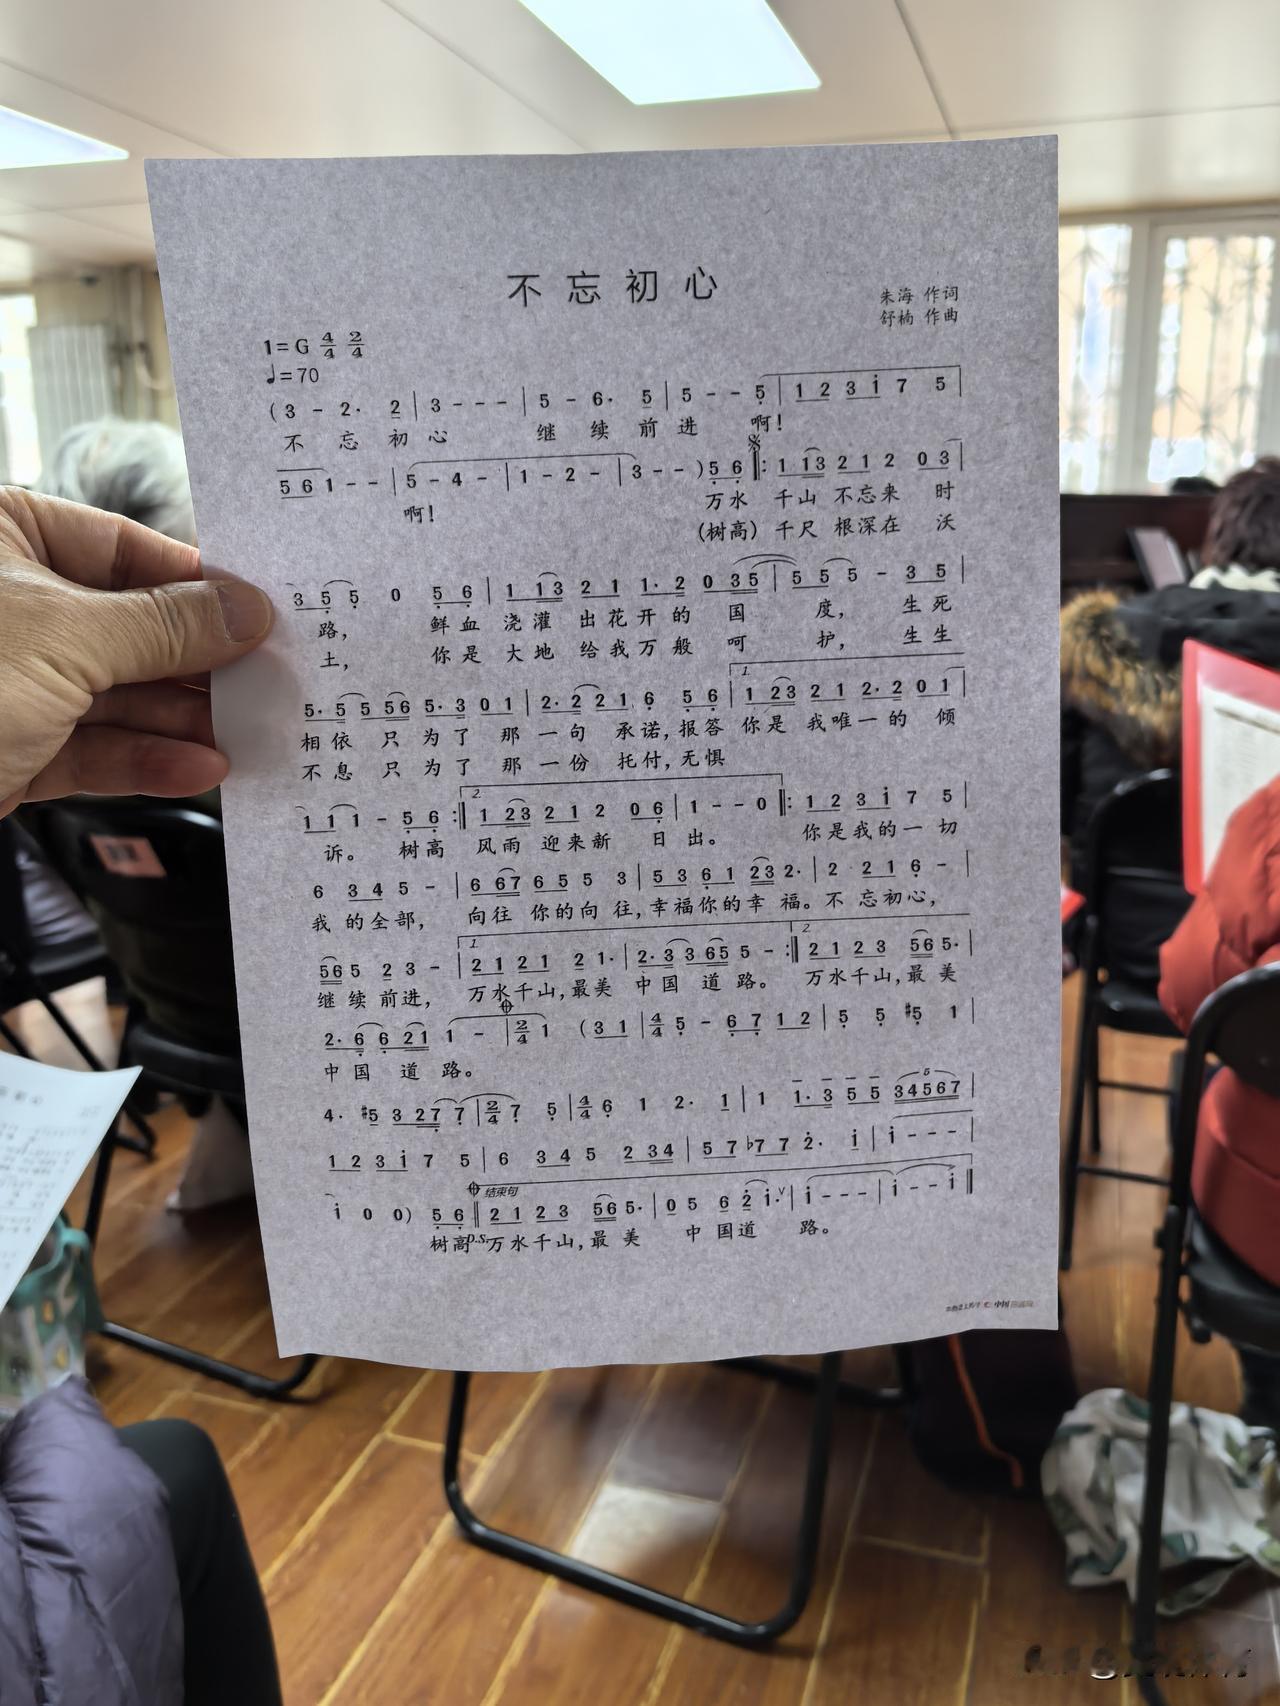 不忘初心
朱海 作词
舒楠 作曲
1=G 4/4 2/4
♩=70
(3 - 2· 2 | 3 - - - | 5 - 6· 5 | 5 - - 5 | 1 2 3 i 7 5 |
不 忘 初 心 继 续 前 进 啊！
5 6 1 - - | 5 - 4 - | 1 - 2 - | 3 - - ) 5 6 ‖: 1 13 2 1 2 0 3 |
啊！ 万水 千山 不忘来 时
(树高) 千尺 根深在 沃
3 5 5 0 5 6 | 1 13 2 1 1· 2 0 35 | 5 5 5 - 3 5 |
路， 鲜血 浇灌 出花开的 国 度， 生死
土， 你是 大地 给我万般 呵 护， 生生
1.
5· 5 5 56 5· 3 0 1 | 2· 2 2 1 6 5 6 | 1 23 2 1 2· 2 0 1 |
相依 只 为了 那 一句 承诺，报答 你是 我唯一的 倾
不息 只 为了 那 一份 托付，无惧
2.
1 1 1 - 5 6 :‖ 1 23 2 1 2 0 6 | 1 - - 0 ‖: 1 2 3 i 7 5 |
诉。 树高 风雨 迎来新 日 出。 你是我的一切
6 3 4 5 - | 6 67 6 5 5 3 | 5 3 6 1 23 2· | 2 2 1 6 - |
我 的全部， 向往 你的向 往，幸福你的幸 福。不 忘初心，
1. 2.
56 5 2 3 - | 2 1 2 1 2 1· | 2· 3 3 65 5 - :‖ 2 1 2 3 56 5· |
继续前进， 万水千山，最美 中国 道 路。 万水千山，最 美
2· 6 6 21 1 - | 2/4 1 (3 1 | 4/4 5 - 6 7 1 2 | 5 5 #5 1 |
中国 道 路。
4· #5 3 27 7 | 2/4 7 5 | 4/4 6 1 2· 1 | 1 1· 3 5 5 34567 |
5
1 2 3 i 7 5 | 6 3 4 5 2 34 | 5 7 ♭7 7 2· i | i - - - |
结束句
i 0 0) 5 6 ‖ 2 1 2 3 56 5· | 0 5 6 2 i· ∨ | i - - - | i - - i ‖
树高 D.S. 万水千山，最 美 中 国道 路。